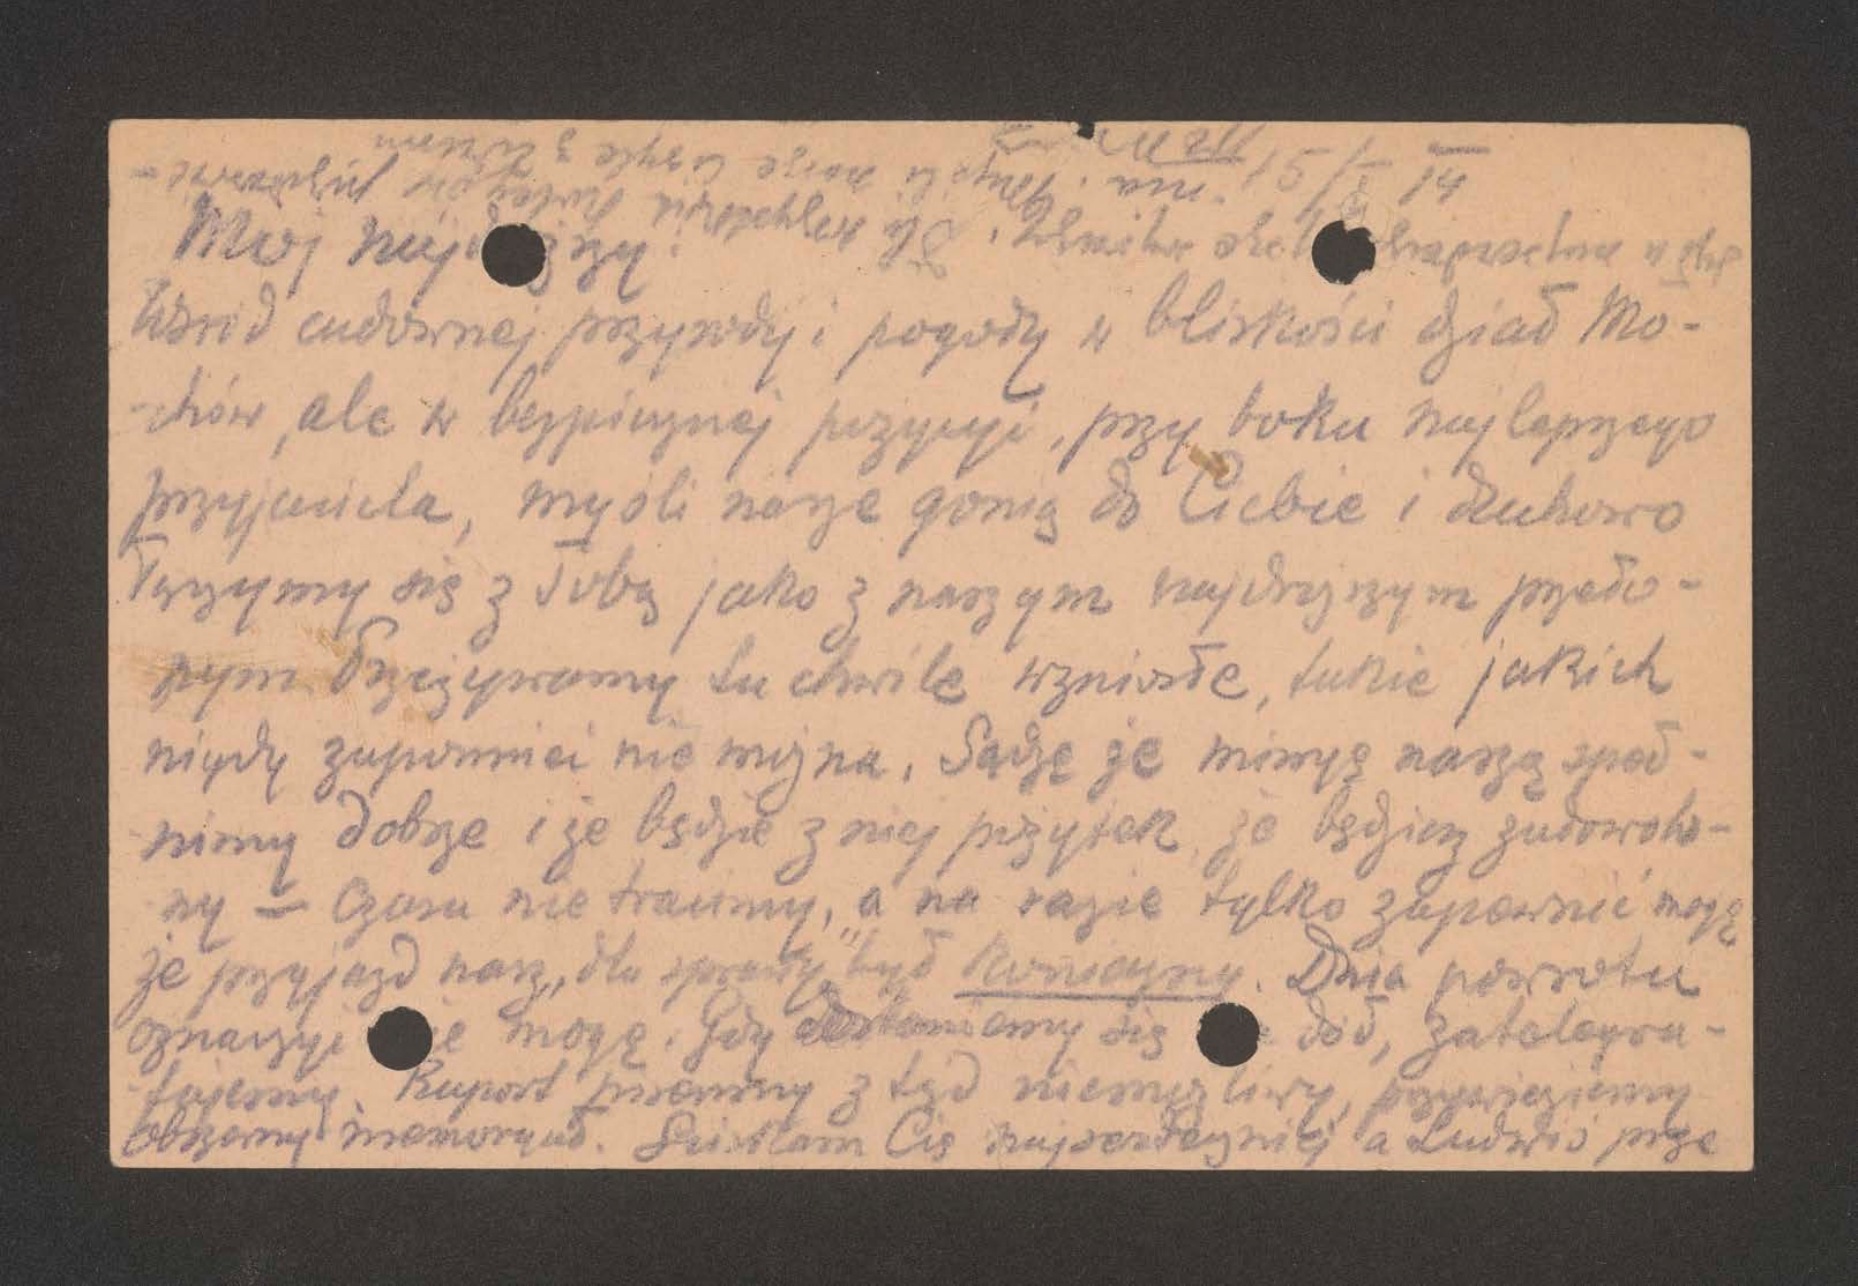 15/X 14
Mój naj
Wśród cudownej przyrody i pogody w bliskości dział Mo-
-chów, ale w bezpiecznej pozycyi, przy boku najlepszego
przyjaciela, myśli nasze gonią do Ciebie i duchowo
łączymy się z Tobą jako z naszym najdroższym przeło-
żonym Przeżywamy tu chwile wzniosłe, takie jakich
nigdy zapomnieć nie można. Sądzę że misyę naszą speł-
nimy dobrze i że będzie z niej pożytek, że będziesz zadowolo-
ny — Czasu nie tracimy, a na razie tylko zapewnić mogę
że przyjazd nasz „dla sprawy" był konieczny. Dnia powrotu
oznaczyć nie mogę. Gdy dostaniemy się dół, zatelegra-
fujemy. Raport pisemny z tąd niemożliwy, przywieziemy
obszerny memoryał. Ściskam Cię najserdeczniej a Ludwiś prze